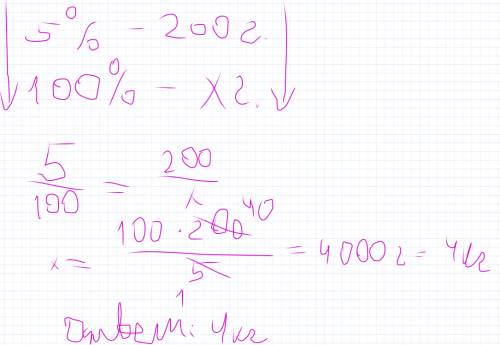 5% - 200г.
100% - x г.
5/100 = 200/x
x = 100 · 200 40 / 5 1 = 4000г = 4кг
Ответ: 4кг